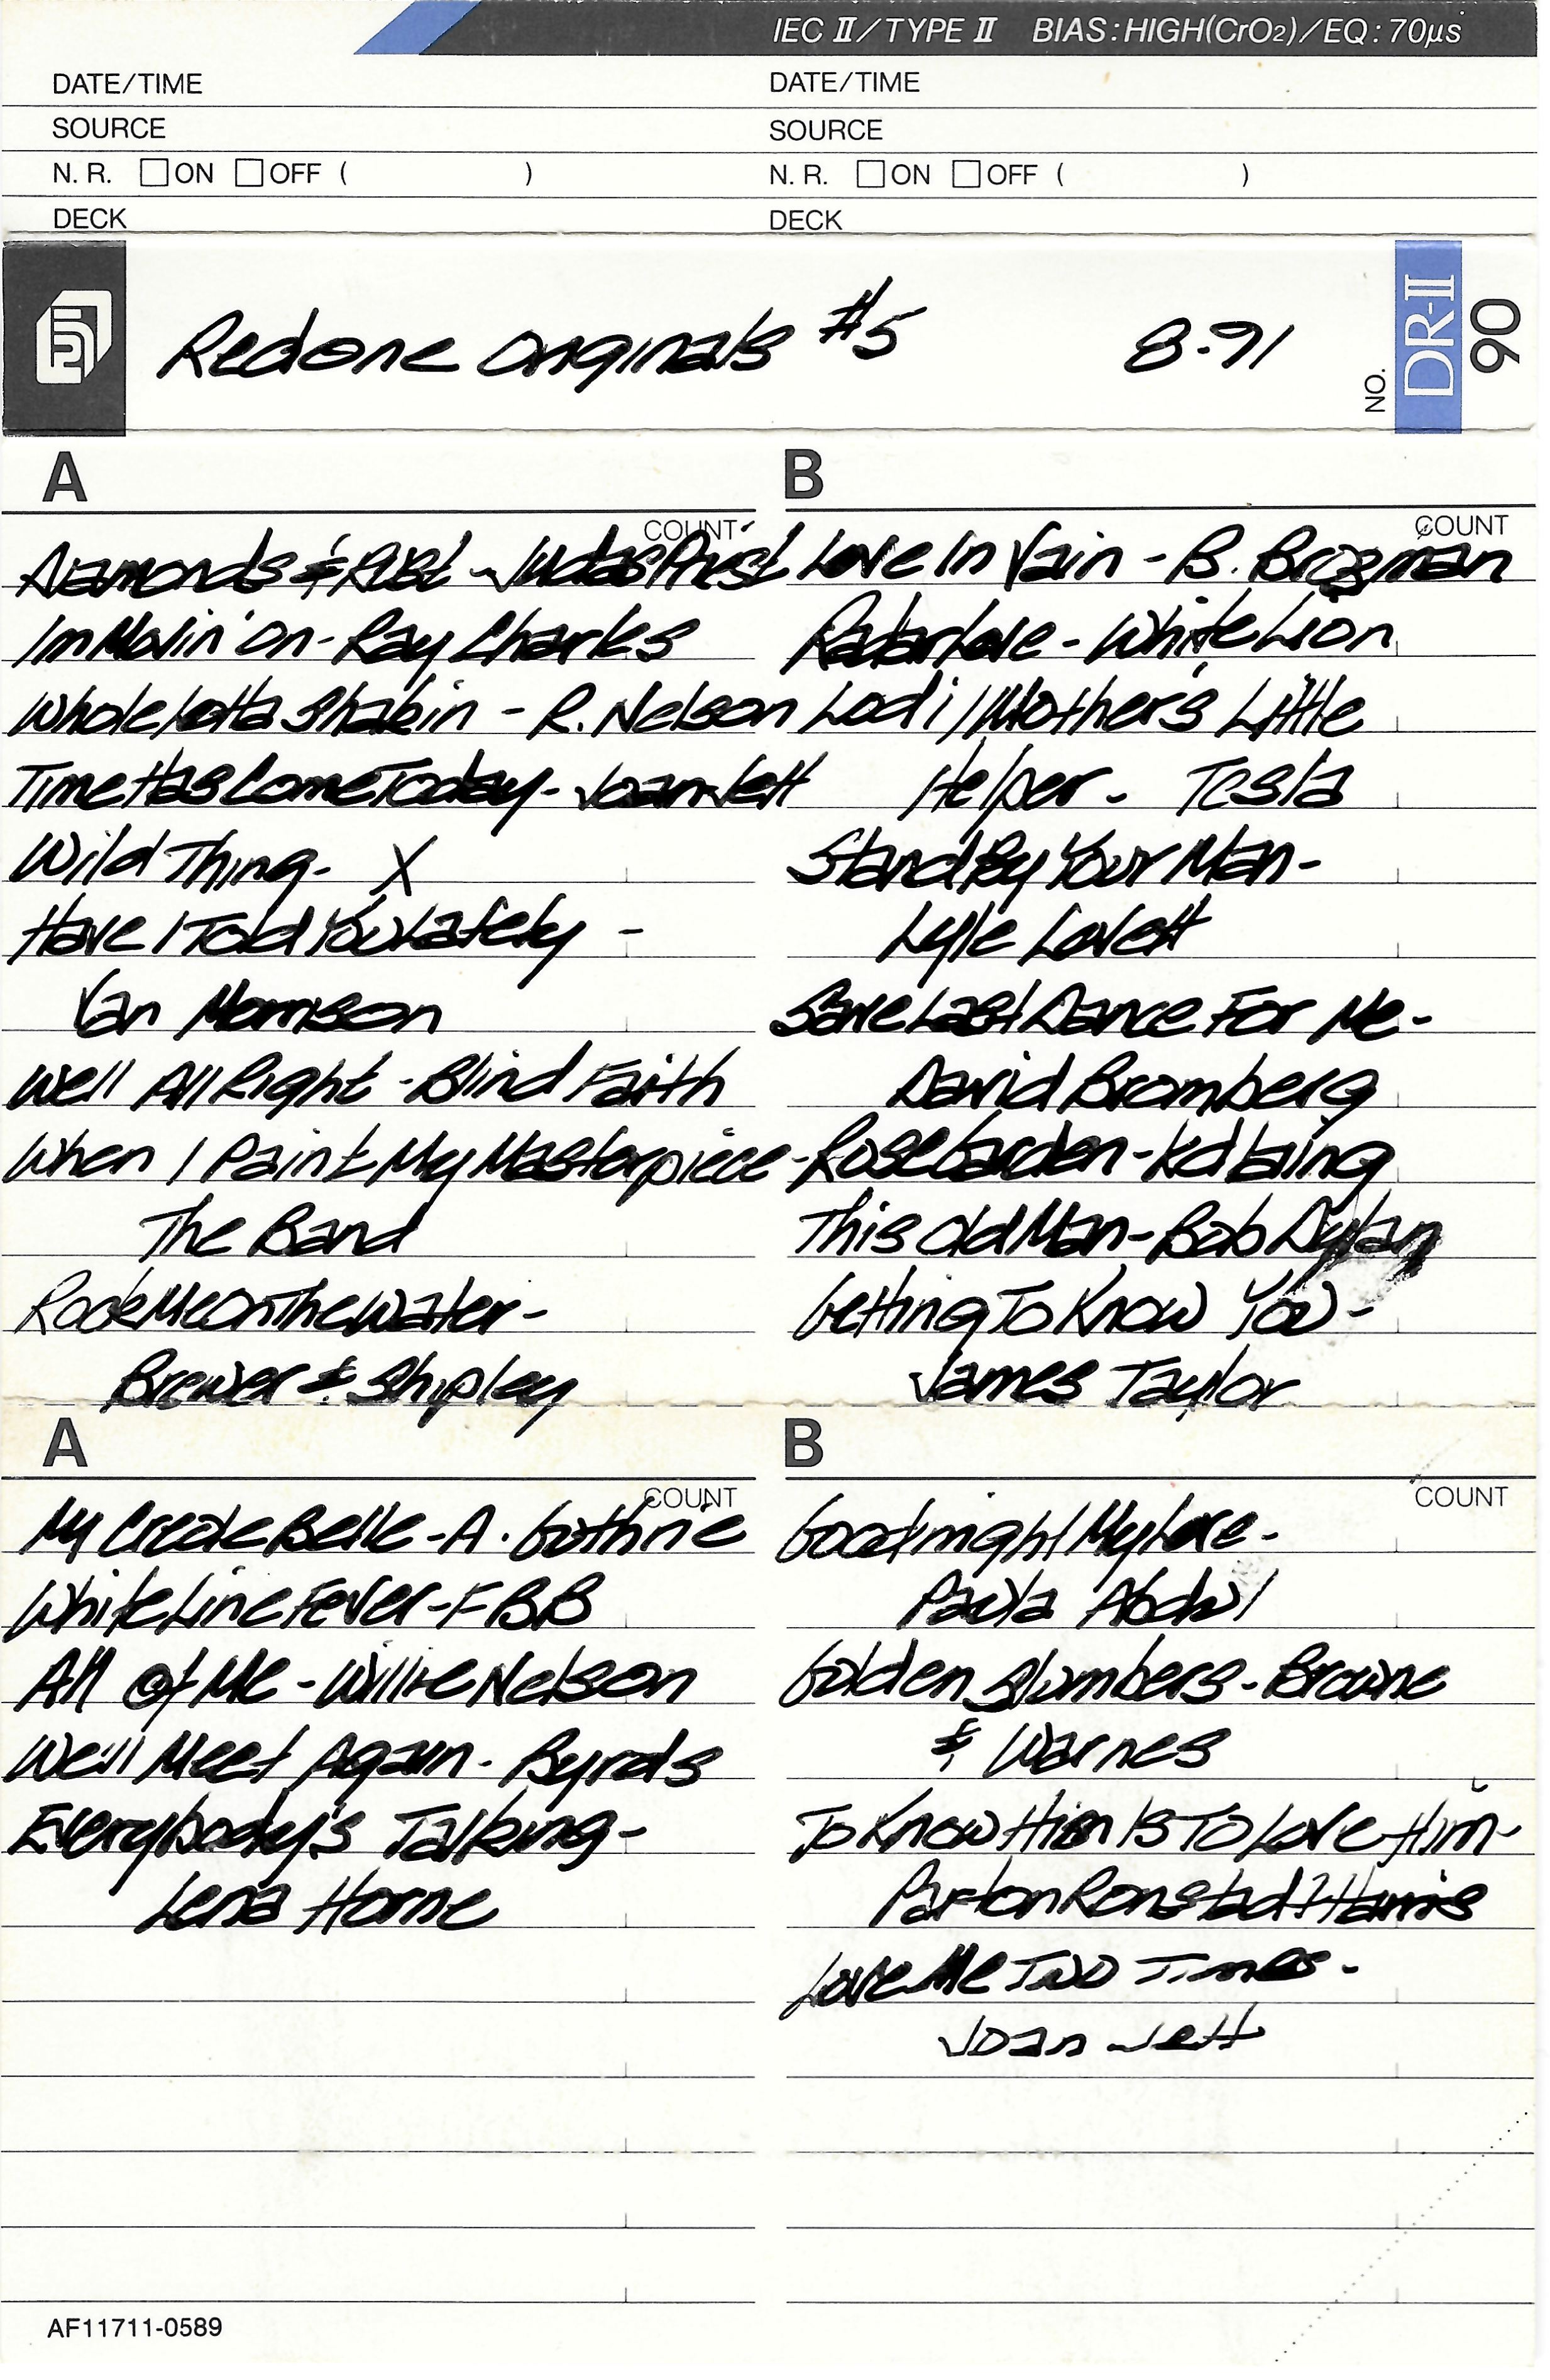 IEC II/TYPE II BIAS:HIGH(CrO2)/EQ:70μs
DATE/TIME
SOURCE
N.R. ☐ON ☐OFF ( )
DECK
DATE/TIME
SOURCE
N.R. ☐ON ☐OFF ( )
DECK
Redone Originals #5 8-91
NO.
DR-II
90
A
COUNT
Diamonds & Rust - Judas Priest
Im Movin' On - Ray Charles
Whole Lotta Shakin - R. Nelson
Time Has Come Today - Joan Jett
Wild Thing - X
Have I Told You Lately -
Van Morrison
Well All Right - Blind Faith
When I Paint My Masterpiece -
The Band
Rock Me On The Water -
Brewer & Shipley
B
COUNT
Love In Vain - B. Brozman
Radar Love - White Lion
Lodi / Mother's Little
Helper - Tesla
Stand By Your Man -
Lyle Lovett
Save Last Dance For Me -
David Bromberg
Rose Garden - Kd Laing
This Old Man - Bob Dylan
Getting To Know You -
James Taylor
A
COUNT
My Creole Belle - A. Guthrie
White Line Fever - FBB
All of Me - Willie Nelson
We'll Meet Again - Byrds
Everybody's Talking -
Lena Horne
B
COUNT
Goodnight My Love -
Paula Abdul
Golden Slumbers - Browne
& Warnes
To Know Him Is To Love Him -
Parton Ronstad? Harris
Love Me Two Times -
Joan Jett
AF11711-0589